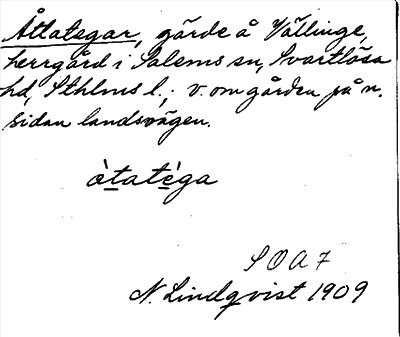 Åttategar, gärde å Vällinge,
herrgård i Salems sn, Svartlösa
hd, Sthlms l.; v. om gården på n.
sidan landsvägen.
àtatèga
SOA 7
N. Lindqvist 1909